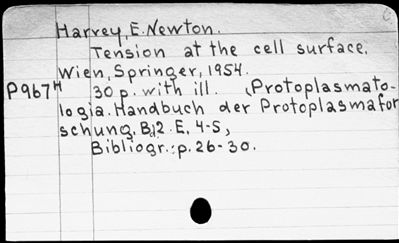 Harvey, E. Newton.
Tension at the cell surface.
Wien, Springer, 1954.
P967H 30 p. with ill. (Protoplasmato-
logia. Handbuch der Protoplasmafor
schung, Bd2. E, 4-5,
Bibliogr.: p. 26-30.